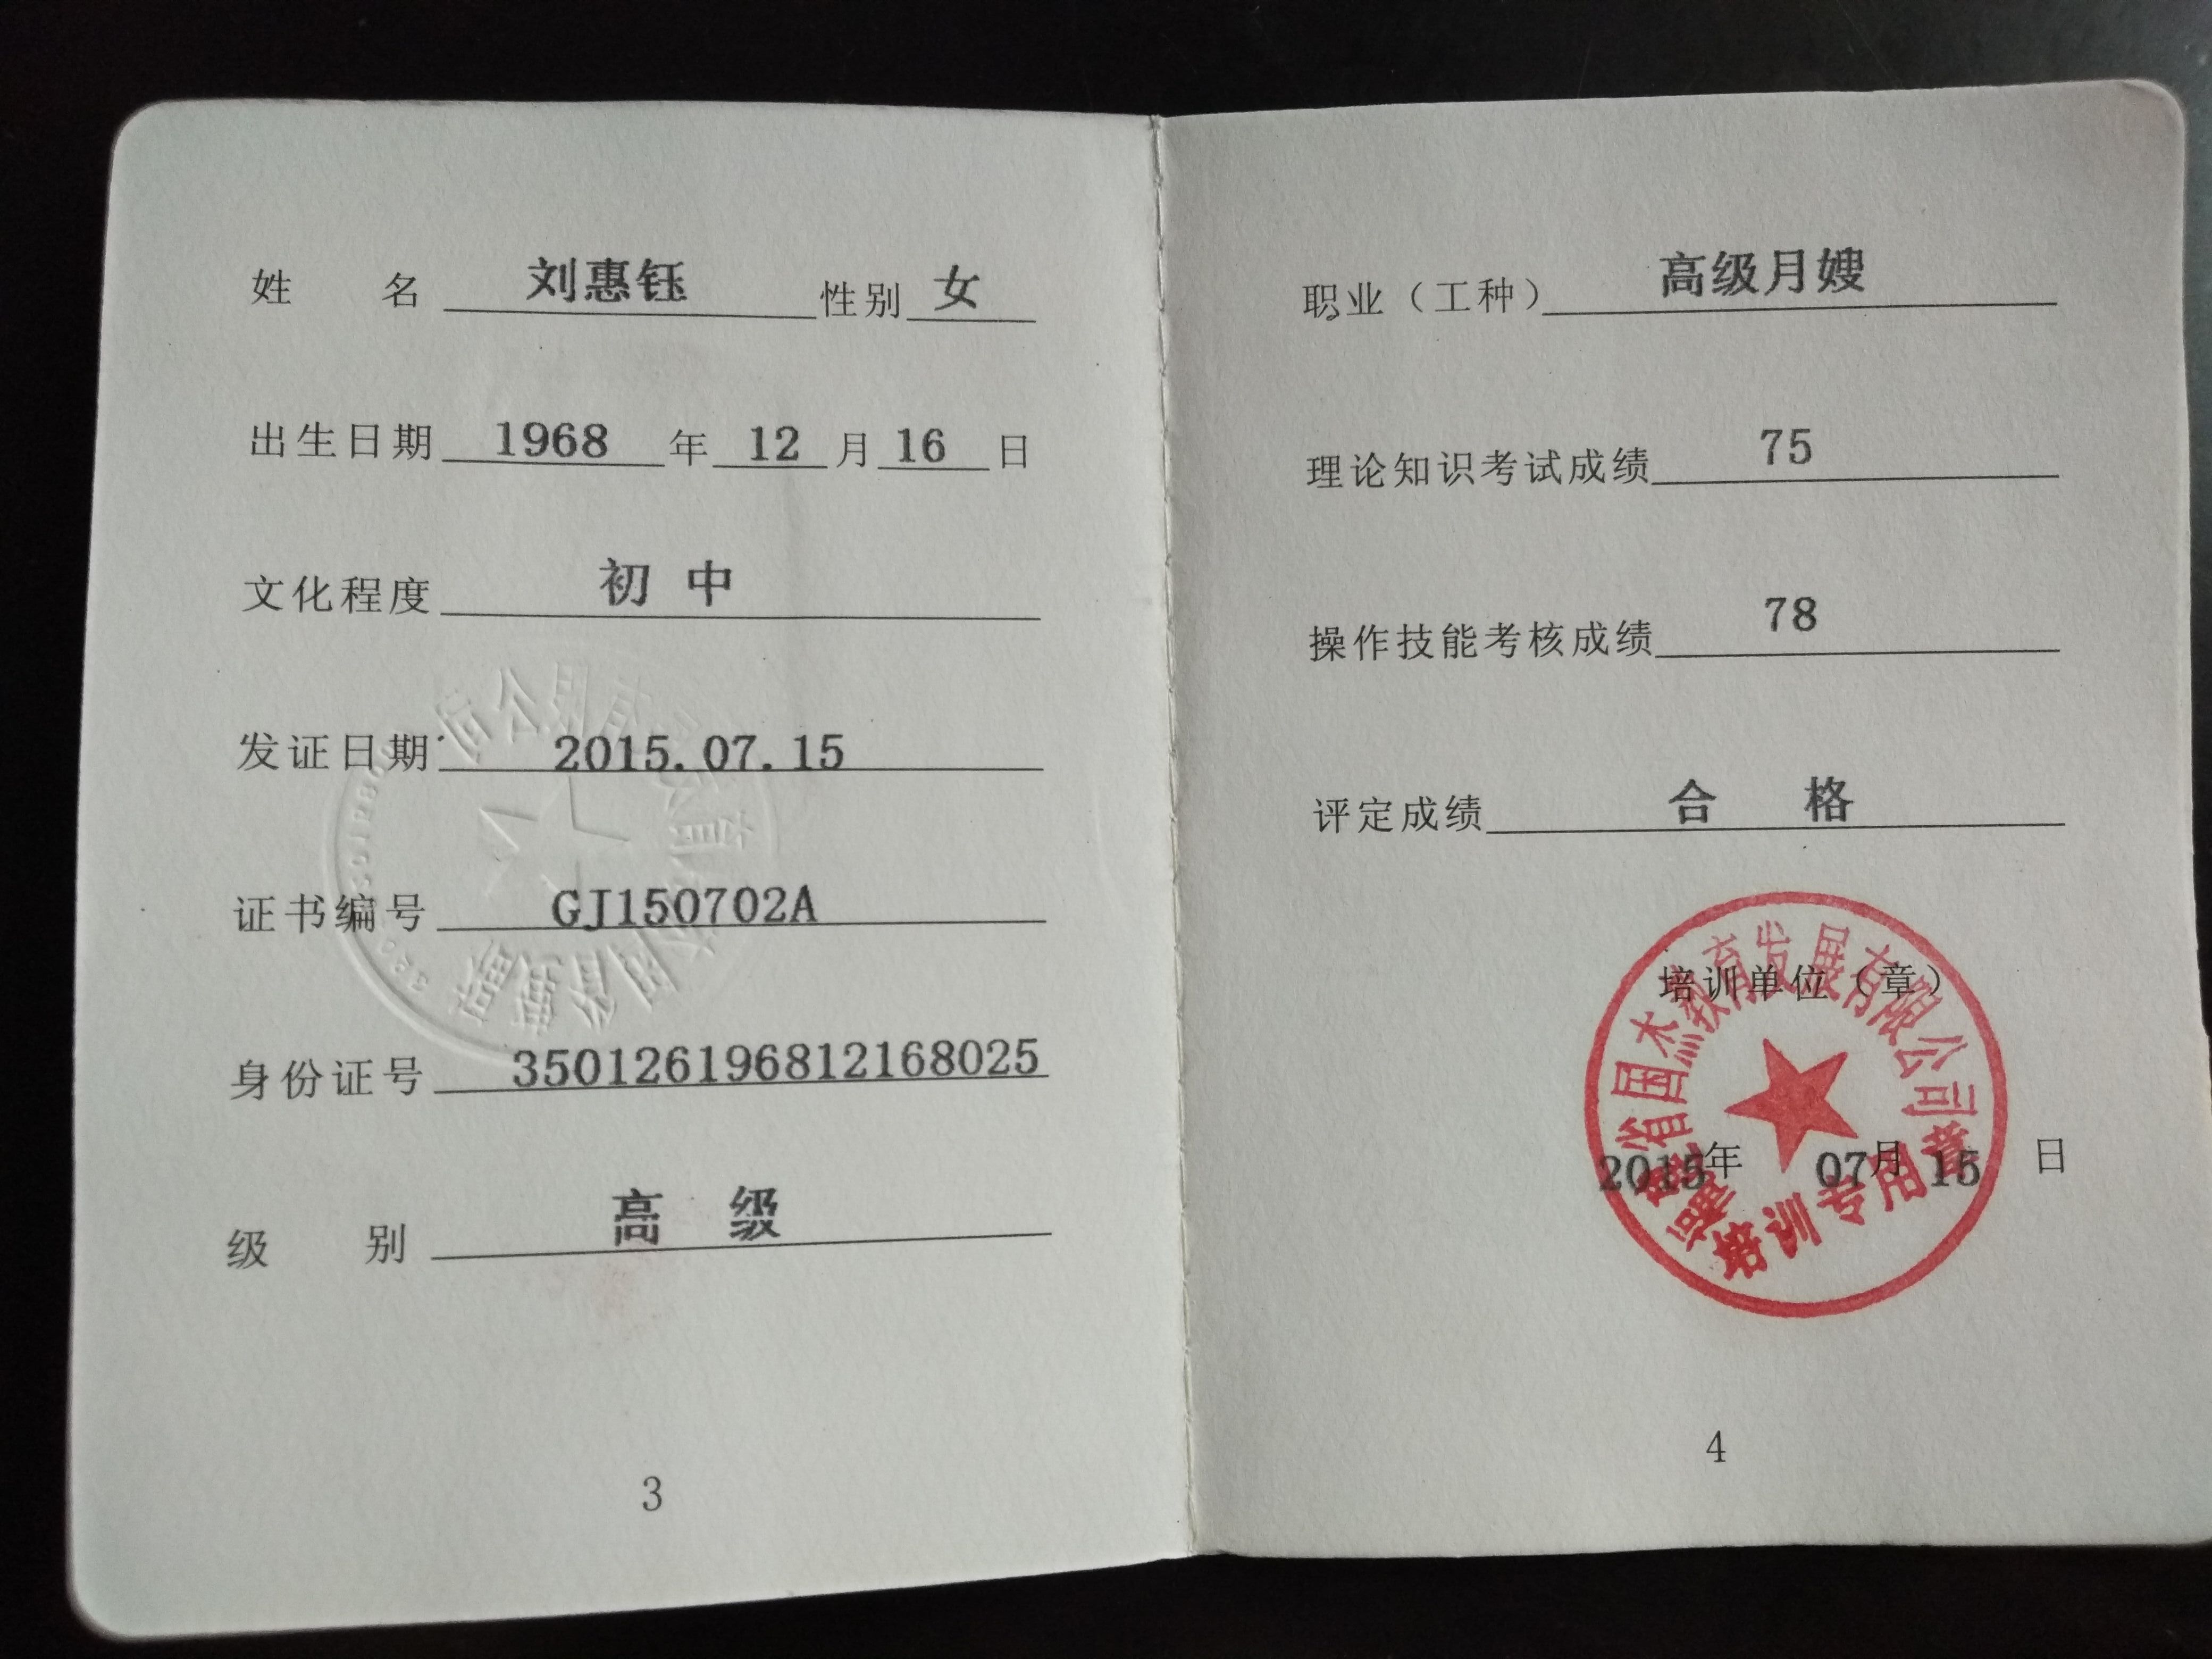 姓 名 刘惠钰 性别 女
出生日期 1968 年 12 月 16 日
文化程度 初 中
发证日期 2015.07.15
证书编号 GJ150702A
身份证号 350126196812168025
级 别 高 级
3
职业（工种） 高级月嫂
理论知识考试成绩 75
操作技能考核成绩 78
评定成绩 合 格
培训单位（章）
福建省国杰教育发展有限公司
培训专用章
2015年 07月 15 日
4